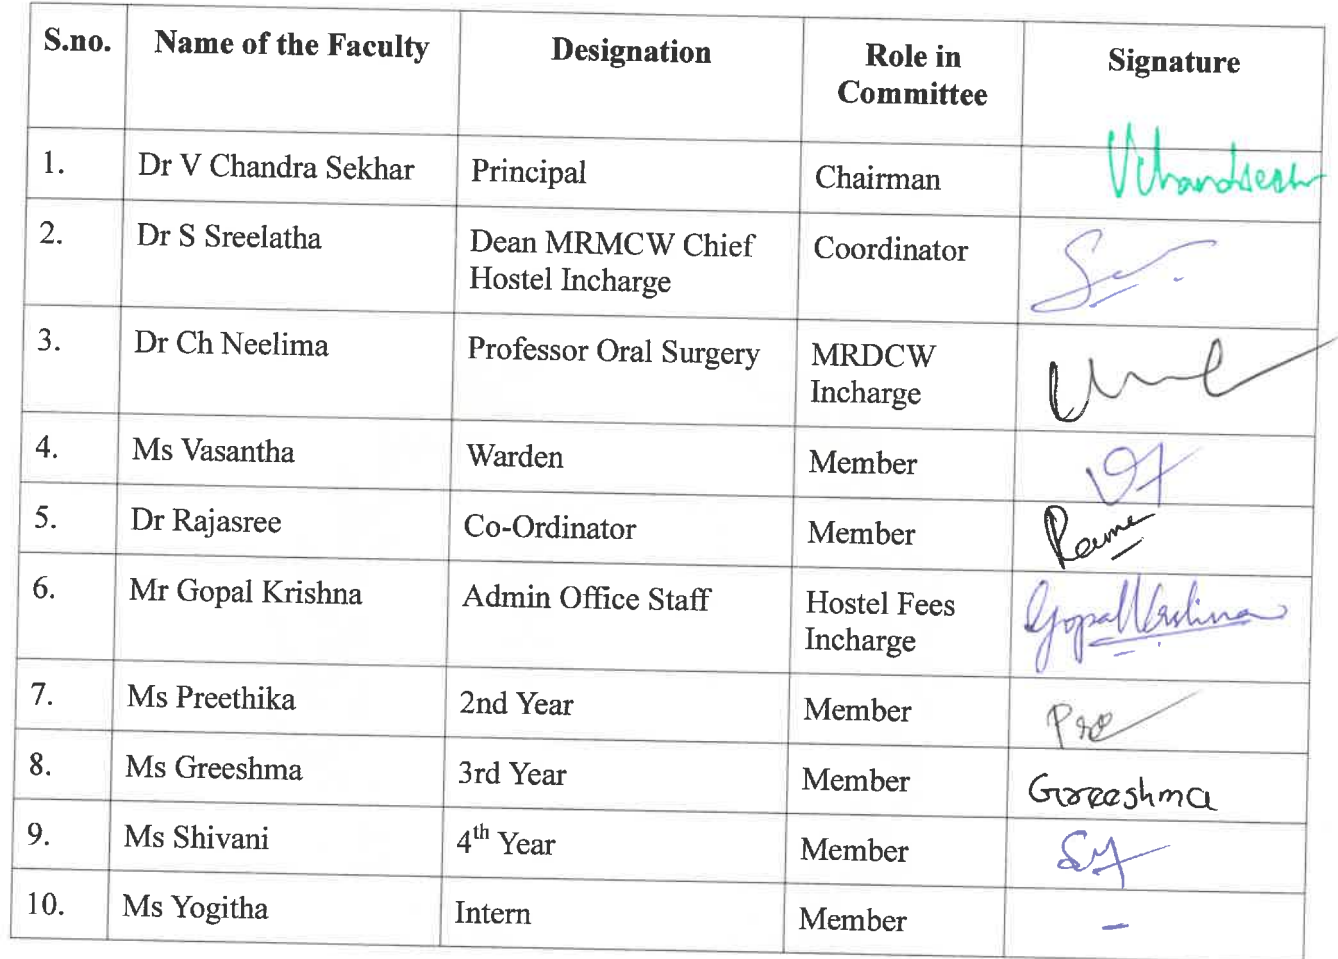 S.no. Name of the Faculty Designation Role in Committee Signature
1. Dr V Chandra Sekhar Principal Chairman VChandrasekhar
2. Dr S Sreelatha Dean MRMCW Chief Hostel Incharge Coordinator
3. Dr Ch Neelima Professor Oral Surgery MRDCW Incharge
4. Ms Vasantha Warden Member
5. Dr Rajasree Co-Ordinator Member
6. Mr Gopal Krishna Admin Office Staff Hostel Fees Incharge GopalKrishna
7. Ms Preethika 2nd Year Member Pre
8. Ms Greeshma 3rd Year Member Greeshma
9. Ms Shivani 4th Year Member
10. Ms Yogitha Intern Member -